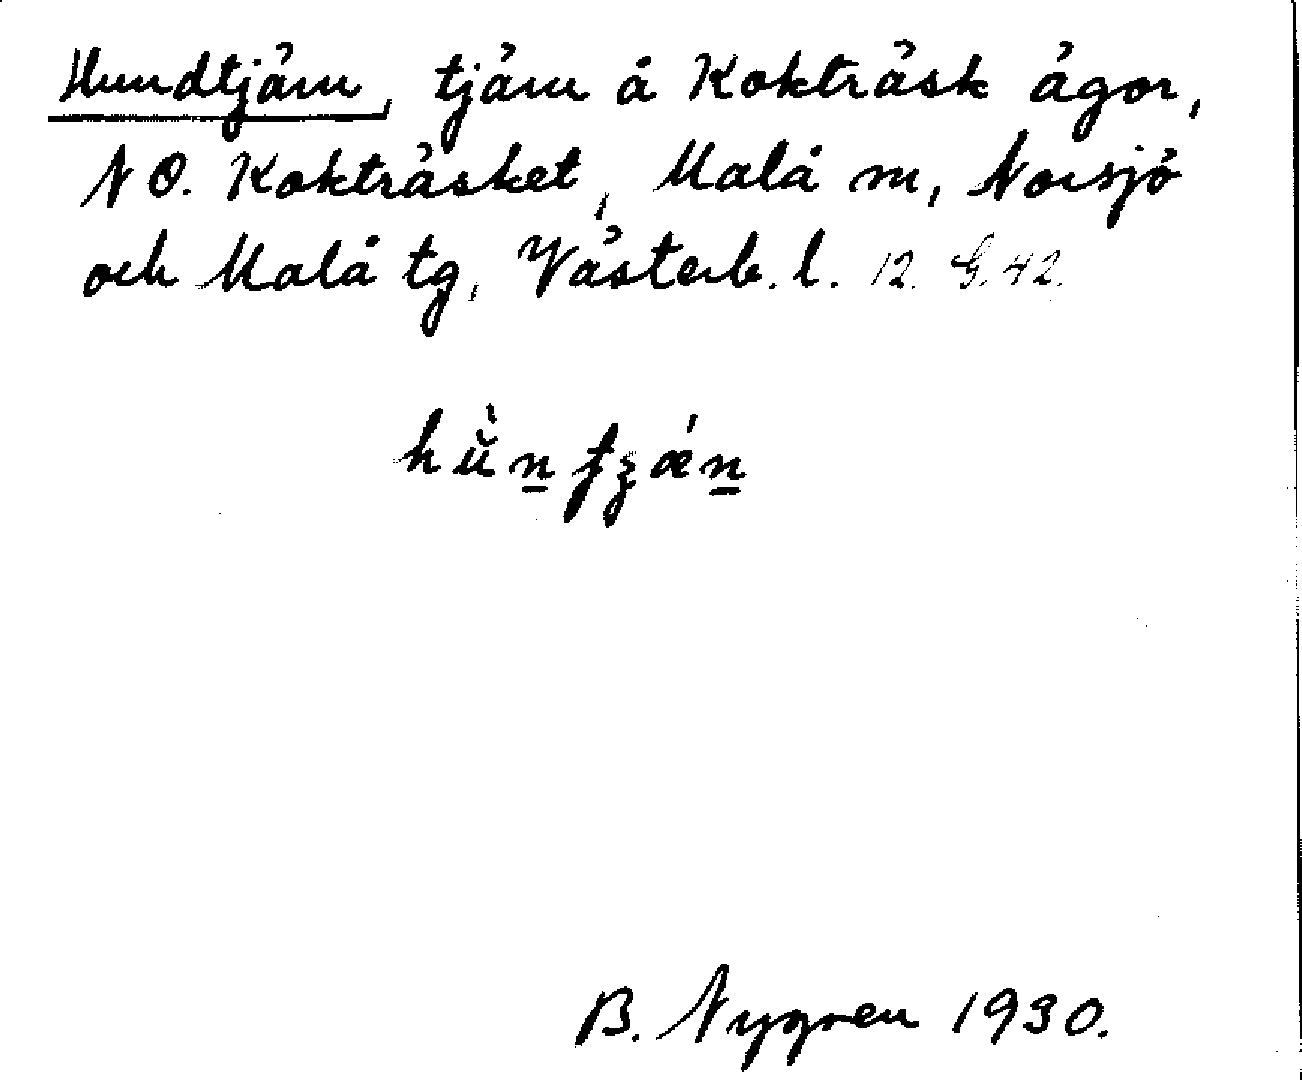 Hundtjärn, tjärn å Kokträsk ägor,
NO. Kokträsket, Malå sn, Norsjö
och Malå tg, Västerb. l. 12. G. 42.
B. Nygren 1930.